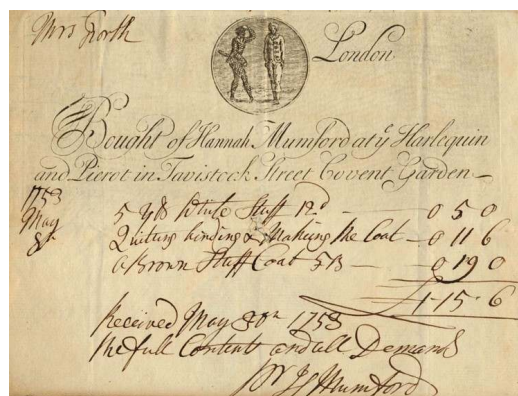 Mrs North
London
Bought of Hannah Mumford at ye Harlequin
and Pierot in Tavistock Street Covent Garden
1753
May 8th
5 Yds White Stuff 12d — 0 5 0
Quilting binding & Making the Coat — 0 11 6
a Brown Stuff Coat — 0 19 0
£ 1 - 15 - 6
Received May 1753
the full Contents and all Demands
Mumford